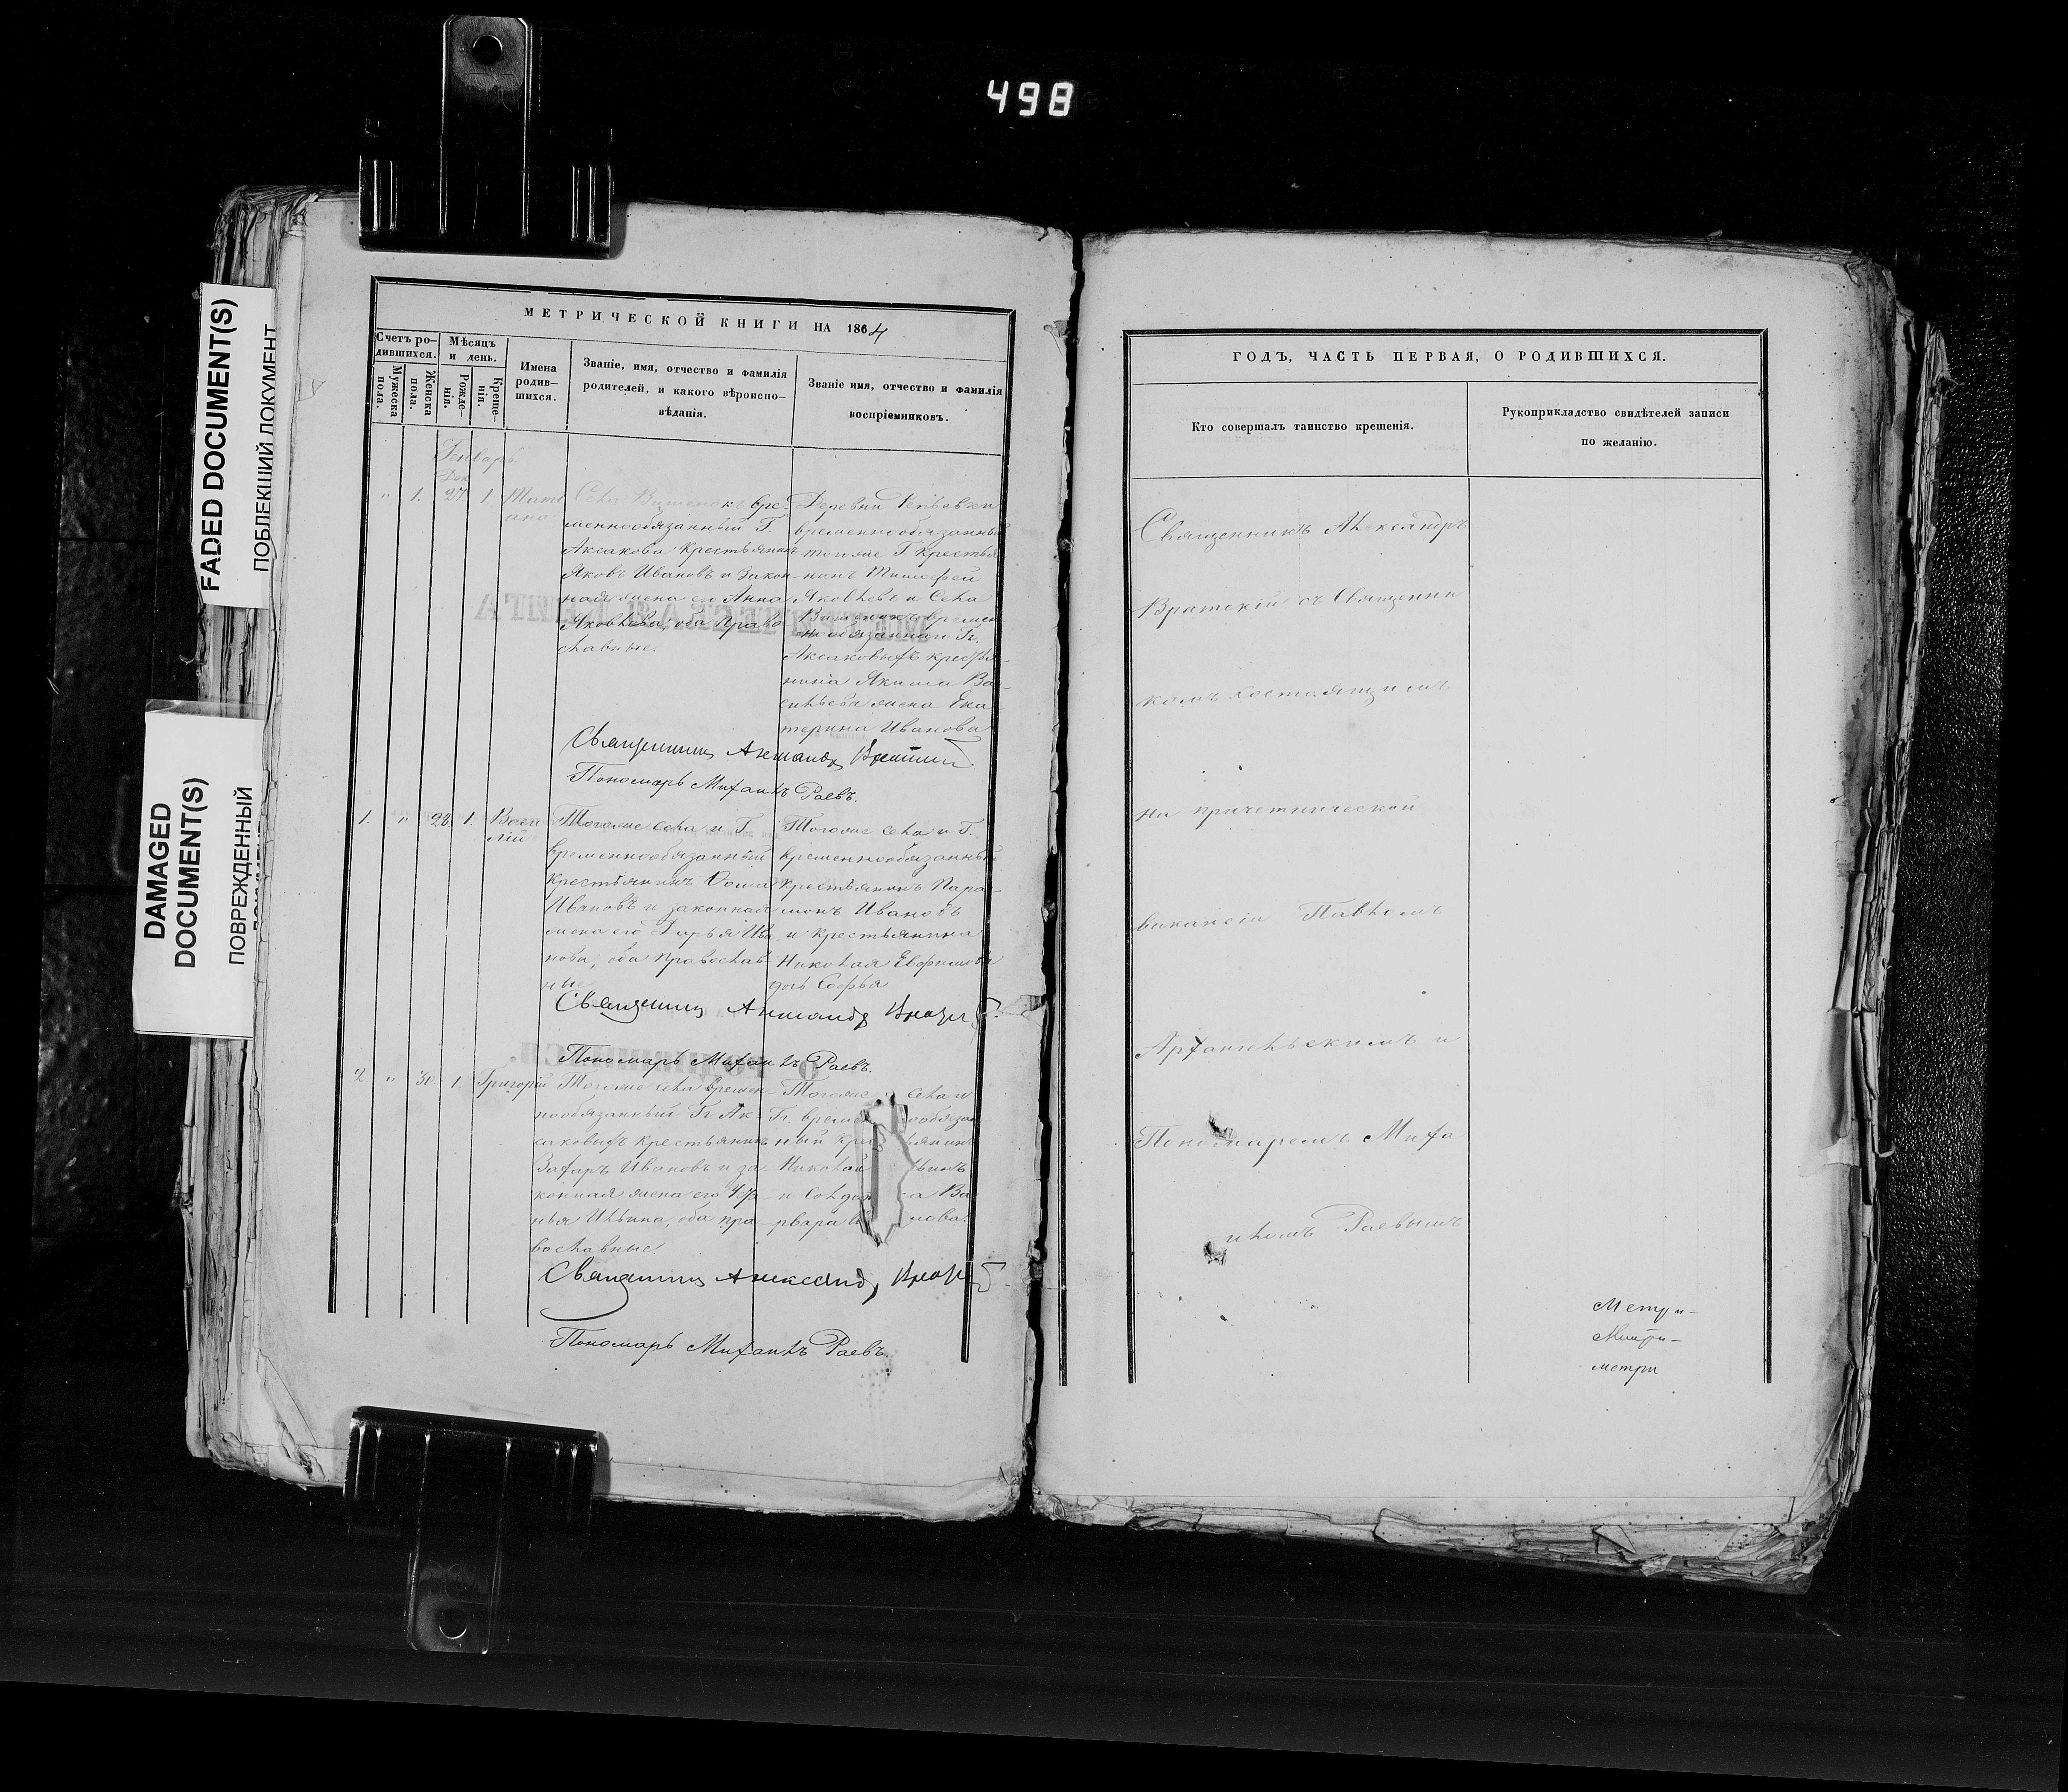 498
FADED DOCUMENT(S)
ПОБЛЕКШИЙ ДОКУМЕНТ
DAMAGED
DOCUMENT(S)
ПОВРЕЖДЕННЫЙ
МЕТРИЧЕСКОЙ КНИГИ НА 1864
Счетъ ро-
дившихся.
Мужеска
пола.
Женска
пола.
Мѣсяцъ
и день.
Рожде-
нія.
Креще-
нія.
Имена
родив-
шихся.
Званіе, имя, отчество и фамилія
родителей, и какого вѣроиспо-
вѣданія.
Званіе имя, отчество и фамилія
воспріемниковъ.
Генварь
Дек
" 1. 27 1. Тати
ана
Села вре
меннообязанный Г.
Аксакова крестьянинъ
Яковъ Ивановъ и закон-
ная жена его Анна
Яковлева, оба право
славные.
Деревни
временнообязанный
тогоже Г. крестья
нинъ Тимофей
Яковлевъ и Села
времен
нообязаннаго Гг.
Аксаковыхъ крестья-
нина Якима Ва-
сильева жена Ека
терина Иванова
Священникъ Александръ
Пономарь Михаилъ Раевъ.
1. " 28. 1. Васи
лій
Тогоже села и Г.
временнообязанный
крестьянинъ Фома
Ивановъ и законная
жена его Дарья Ива
нова, оба православ
ные
Тогоже села и Г.
временнообязанный
крестьянинъ Пара-
монъ Ивановъ
и крестьянина
Николая Евфимова
дочь Софья
Священникъ Александръ
Пономарь Михаилъ Раевъ.
2 " 30. 1. Григорій
Тогоже села времен-
нообязанный Гг. Ак-
саковыхъ крестьянинъ
Захаръ Ивановъ и за-
конная жена его
Ильина, оба пра-
вославные.
Тогоже села и
Гг. време нообязан
ный кре янинъ
Николай
и Солда а Ва
рвара нова.
Священникъ Александръ
Пономарь Михаилъ Раевъ.
ГОДЪ, ЧАСТЬ ПЕРВАЯ, О РОДИВШИХСЯ.
Кто совершалъ таинство крещенія.
Рукоприкладство свидѣтелей записи
по желанію.
Священникъ Александръ
Вратскій съ Священни
комъ состоящимъ
на причетнической
вакансіи Павломъ
Архангельскимъ и
Пономаремъ Миха
иломъ Раевымъ
Метри-
Метри-
метри